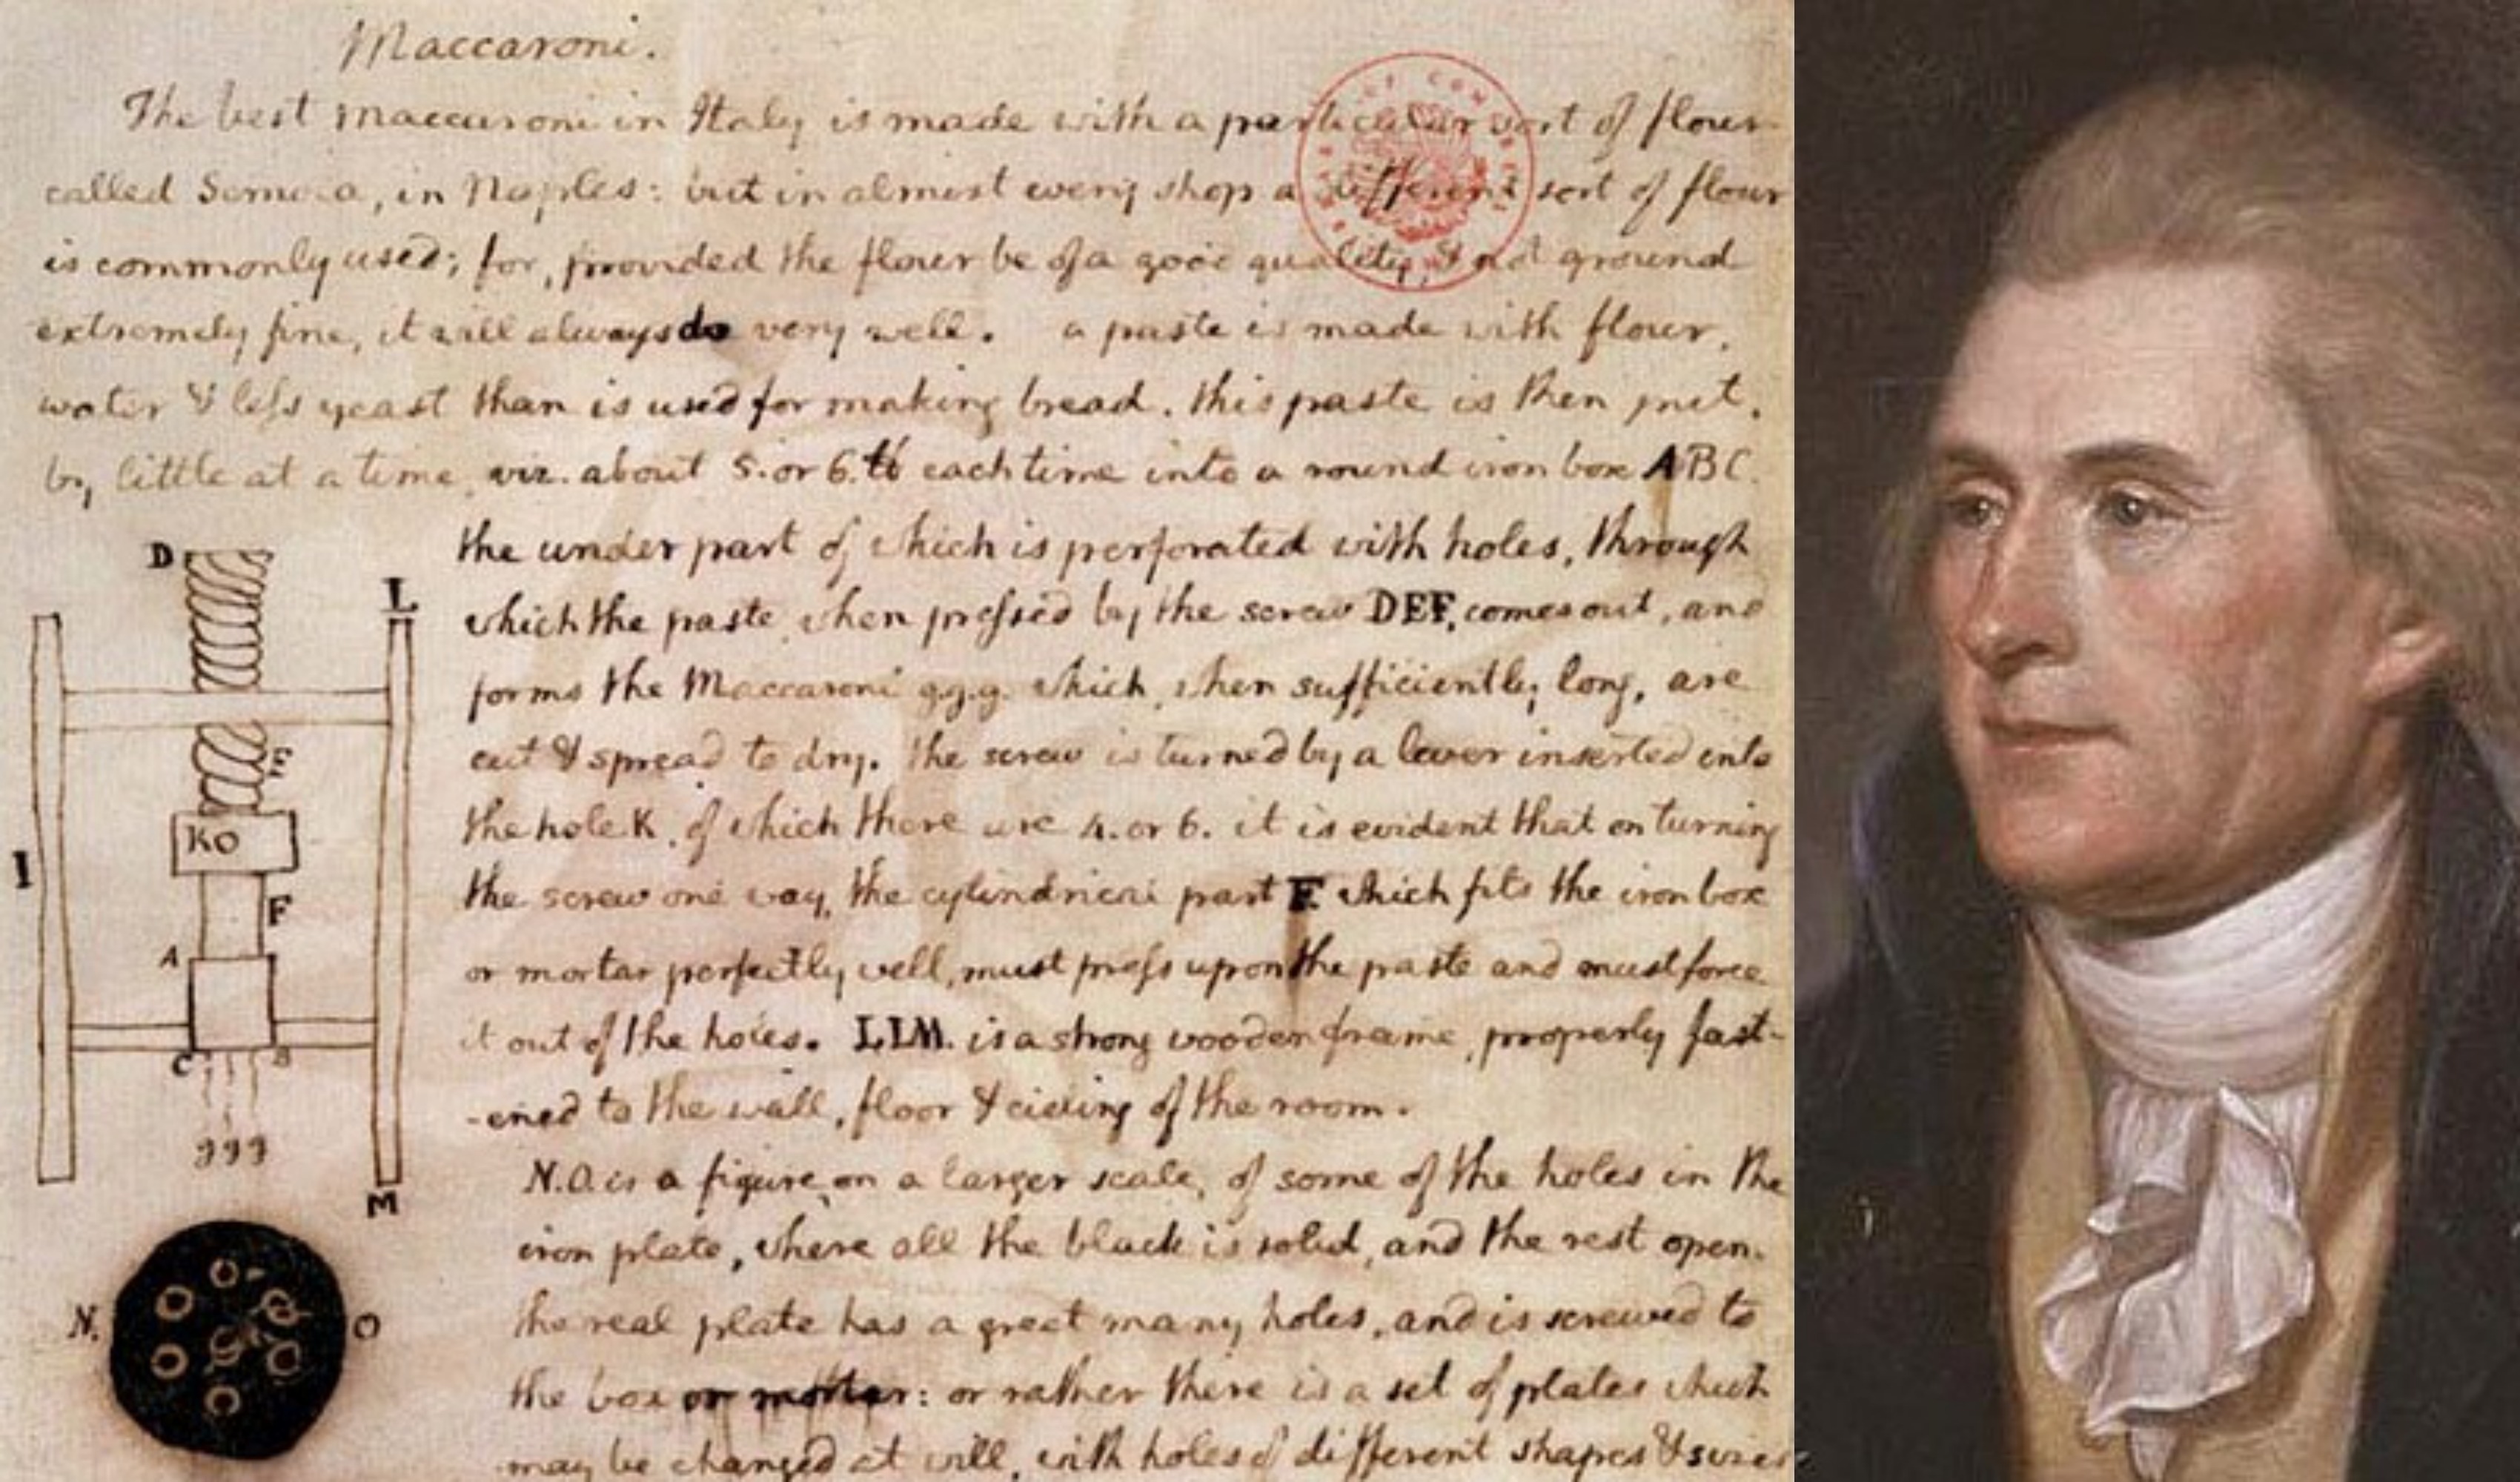 Maccaroni.
The best maccaroni in Italy is made with a particular sort of flour
called Semola, in Naples: but in almost every shop a different sort of flour
is commonly used; for, provided the flour be of a good quality, & not ground
extremely fine, it will always do very well. a paste is made with flour,
water & less yeast than is used for making bread. this paste is then put,
by little at a time, viz. about 5. or 6. ℔ each time into a round iron box ABC.
the under part of which is perforated with holes, through
which the paste, when pressed by the screw DEF, comes out, and
forms the Maccaroni g.g.g. which, when sufficiently long, are
cut & spread to dry. the screw is turned by a lever inserted into
the hole K. of which there are 4. or 6. it is evident that on turning
the screw one way, the cylindrical part F. which fits the iron box
or mortar perfectly well, must press upon the paste and must force
it out of the holes. LLM. is a strong wooden frame, properly fast-
-ened to the wall, floor & cieling of the room.
N.O. is a figure, on a larger scale, of some of the holes in the
iron plate, where all the black is solid, and the rest open.
the real plate has a great many holes, and is screwed to
the box or mortar: or rather there is a set of plates which
may be changed at will, with holes of different shapes & sizes
D
L
E
KO
I
F
A
C
B
ggg
M
N.
O
OF CON